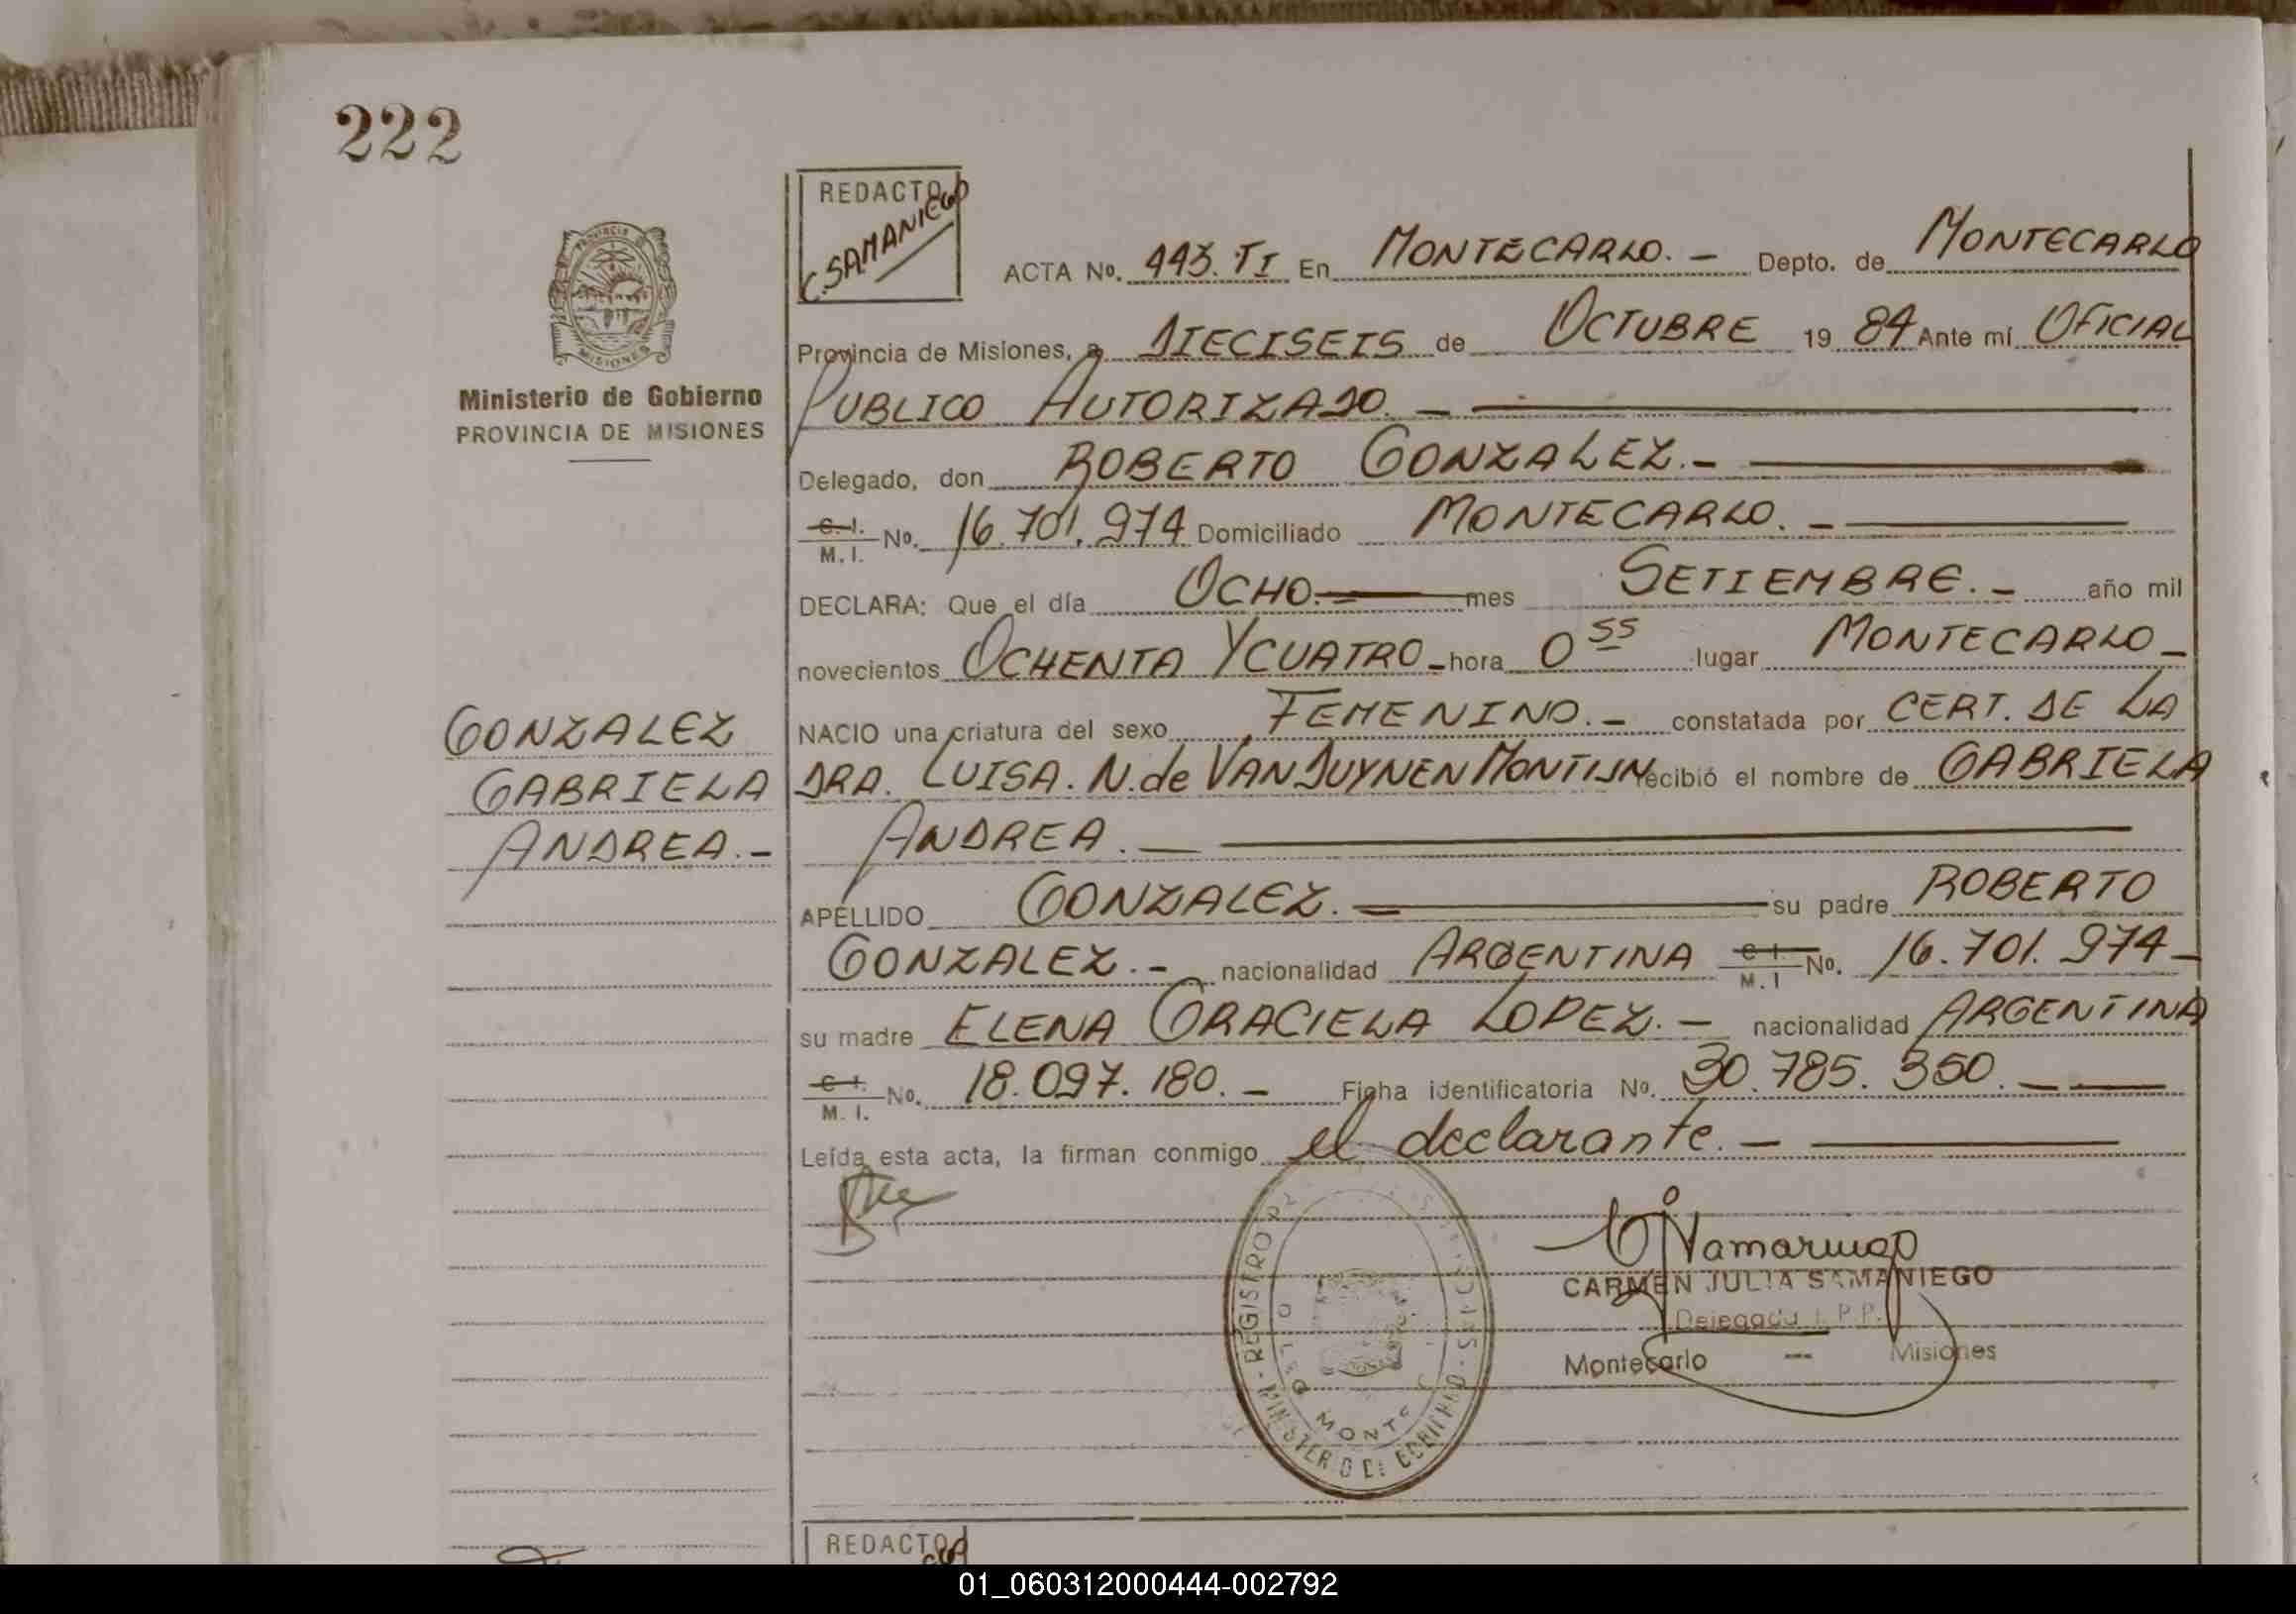 222
REDACTO
C. SAMANIEGO
ACTA No. 443. TI En MONTECARLO. - Depto. de MONTECARLO
Provincia de Misiones, a DIECISEIS de OCTUBRE 19 84 Ante mí OFICIAL
PUBLICO AUTORIZADO. -
Delegado, don ROBERTO GONZALEZ. -
C. I. M. I. No. 16.701.974 Domiciliado MONTECARLO. -
DECLARA: Que el día OCHO. - mes SETIEMBRE. - año mil
novecientos OCHENTA Y CUATRO - hora 0 55 lugar MONTECARLO -
NACIO una criatura del sexo FEMENINO. - constatada por CERT. DE LA
DRA. LUISA. N. de VAN DUYNEN MONTIJN recibió el nombre de GABRIELA
ANDREA. -
APELLIDO GONZALEZ. - su padre ROBERTO
GONZALEZ. - nacionalidad ARGENTINA C. I. M. I No. 16.701.974 -
su madre ELENA GRACIELA LOPEZ. - nacionalidad ARGENTINA
C. I. M. I. No. 18.097.180. - Ficha identificatoria No. 30.785.350. -
Leída esta acta, la firman conmigo el declarante. -
PROVINCIA D
MISIONES
Ministerio de Gobierno
PROVINCIA DE MISIONES
GONZALEZ
GABRIELA
ANDREA. -
CARMEN JULIA SAMANIEGO
Delegada
Montecarlo - Misiones
REGISTRO
MINISTERIO DE GOBIERNO
MONTE
REDACTO
01_060312000444-002792